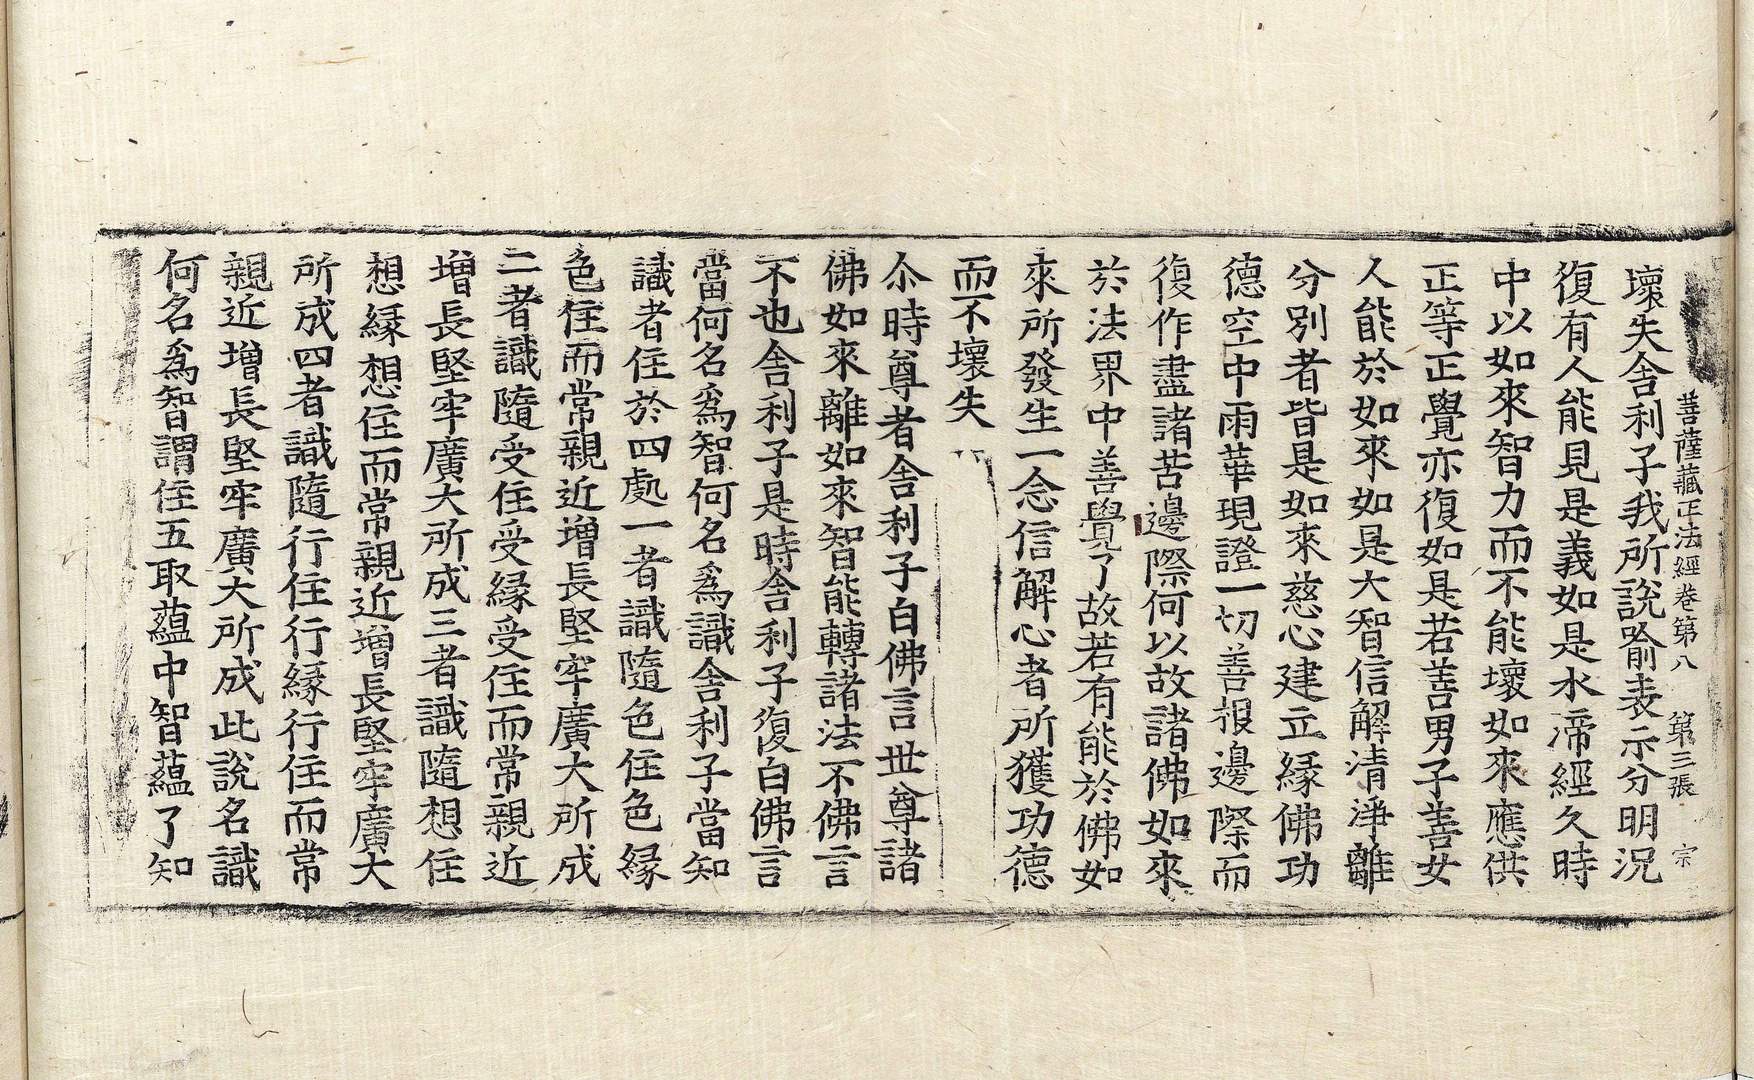 菩薩藏正法經卷第八　第三張　宗
壞失舍利子我所說喻表示分明況
復有人能見是義如是水滯經久時
中以如來智力而不能壞如來應供
正等正覺亦復如是若善男子善女
人能於如來如是大智信解清淨離
分別者皆是如來慈心建立緣佛功
德空中雨華現證一切善根邊際而
復作盡諸苦邊際何以故諸佛如來
於法界中善覺了故若有能於佛如
來所發生一念信解心者所獲功德
而不壞失
尒時尊者舍利子白佛言世尊諸
佛如來離如來智能轉諸法不佛言
不也舍利子是時舍利子復白佛言
當何名爲智何名爲識舍利子當知
識者住於四處一者識隨色住色緣
色住而常親近增長堅牢廣大所成
二者識隨受住受緣受住而常親近
增長堅牢廣大所成三者識隨想住
想緣想住而常親近增長堅牢廣大
所成四者識隨行住行緣行住而常
親近增長堅牢廣大所成此說名識
何名爲智謂住五取蘊中智蘊了知